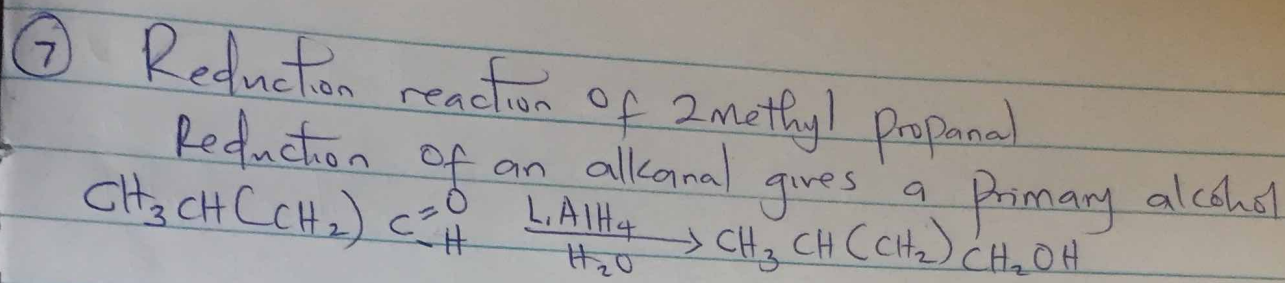 ⑦ Reduction reaction of 2methyl propanal
Reduction of an alkanal gives a primary alcohol
CH₃CH(CH₂) C=O -H LiAlH₄ / H₂O → CH₃CH(CH₂)CH₂OH